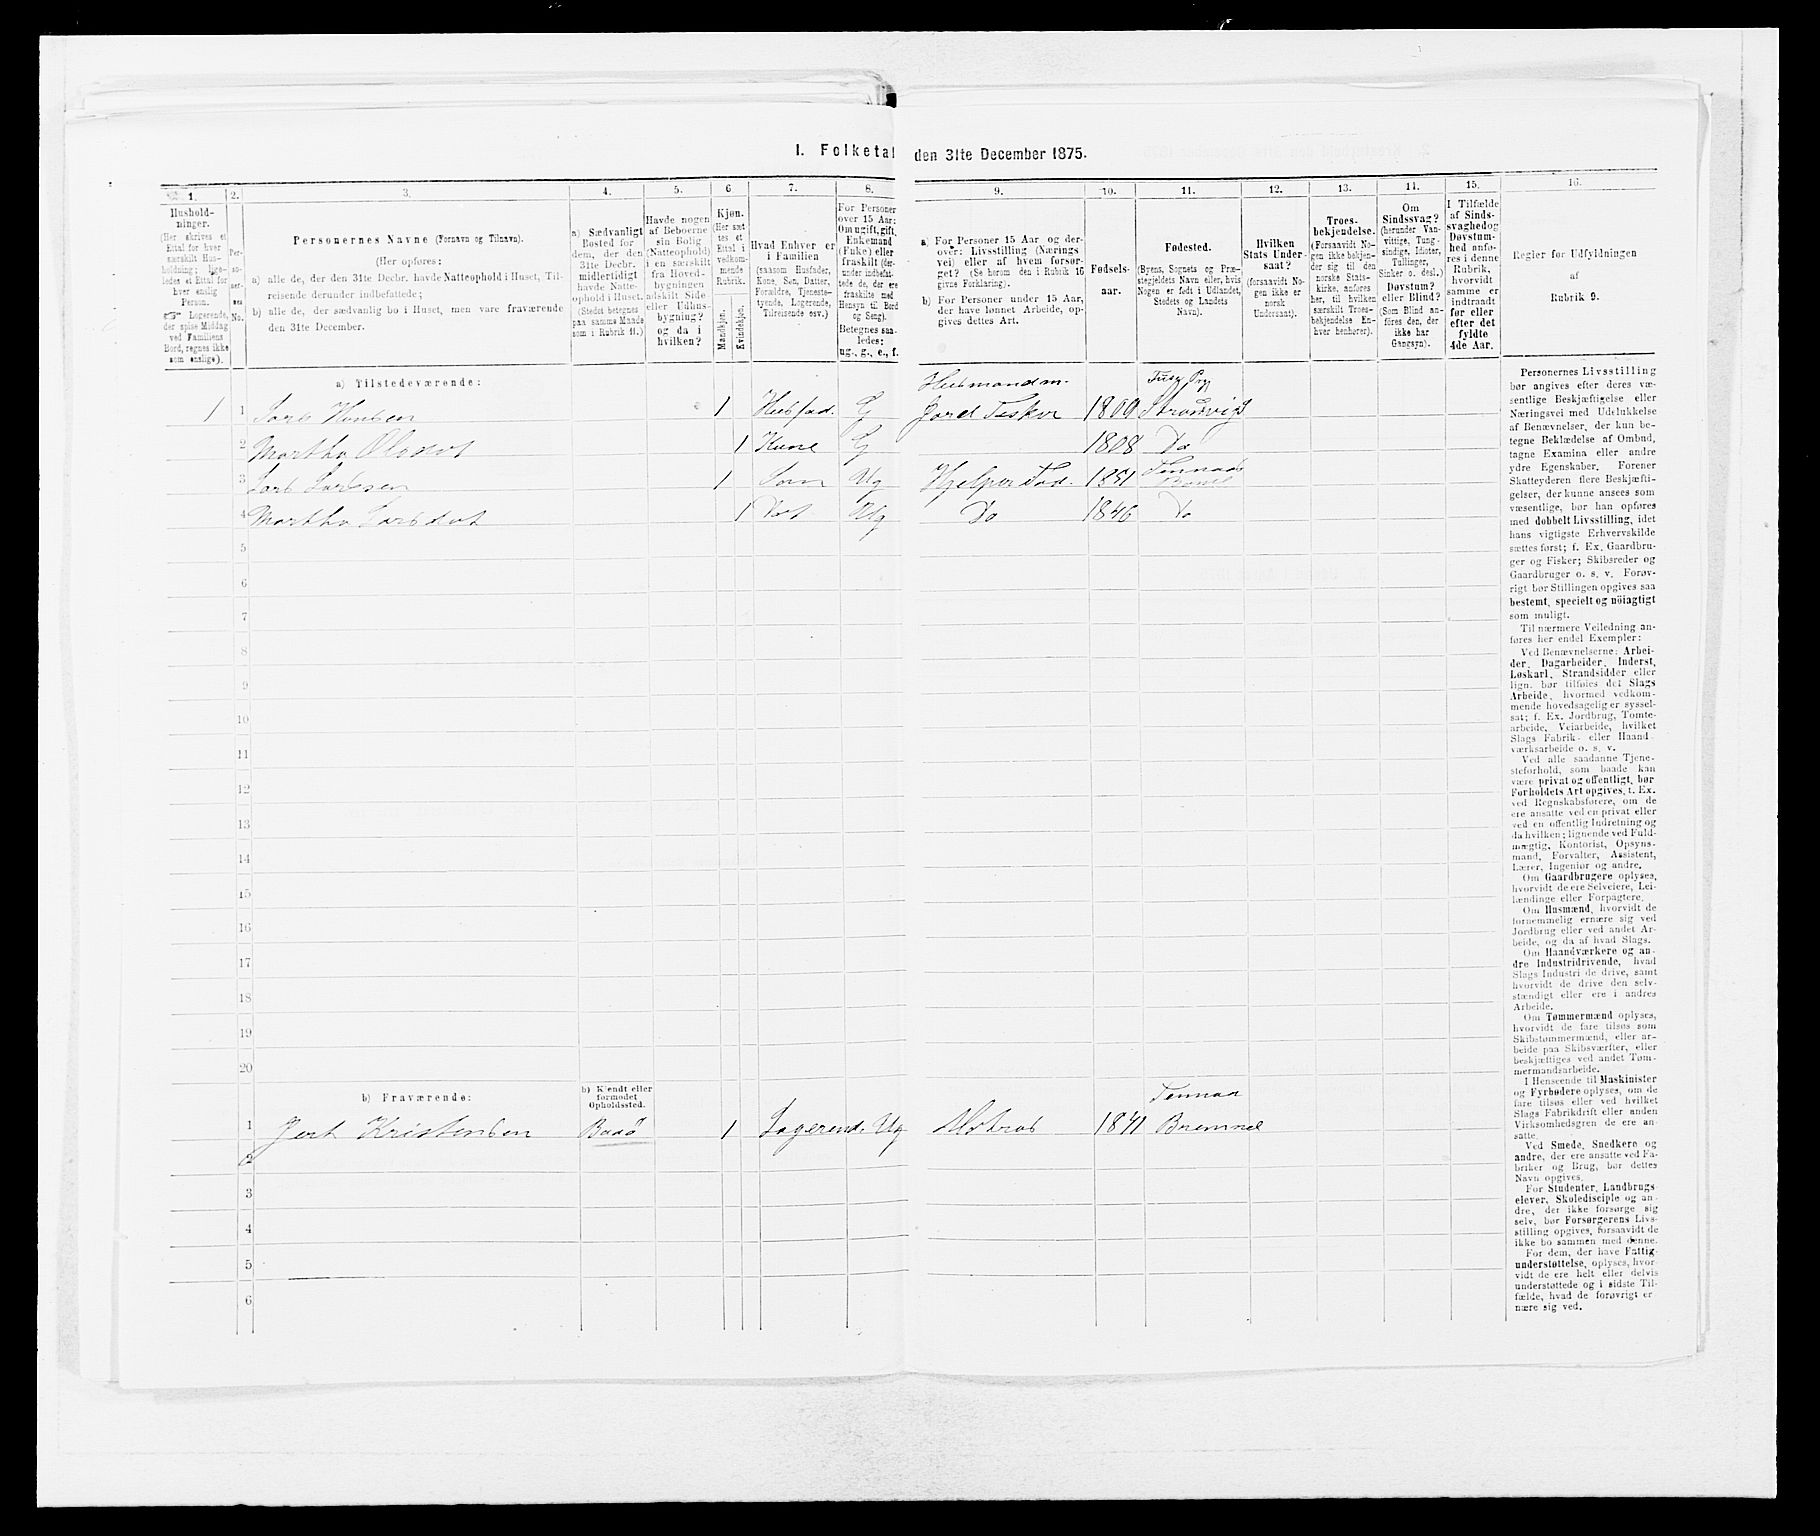 I. Folketal den 31te December 1875.
1.
2.
3.
4.
5.
6
7.
8.
9.
10.
11.
12.
13.
14.
15.
16.
Hushold-
ninger.
(Her skrives et
Ettal for hver
særskilt Hus-
holdning; lige-
ledes et Ettal for
hver enslig
Person.
☞ Logerende,
der spise Middag
ved Familiens
Bord, regnes ikke
som enslige).
Per-
so-
ner-
nes
No.
Personernes Navne (Fornavn og Tilnavn).
(Her opføres:
a) alle de, der den 31te Decbr. havde Natteophold i Huset, Til-
reisende derunder indbefattede;
b) alle de, der sædvanlig bo i Huset, men vare fraværende
den 31te December.
a) Sædvanligt
Bosted for
dem, der den
31te Decbr.
midlertidigt
havde Natte-
ophold i Huset.
(Stedet betegnes
paa samme Maade
som i Rubrik 11.)
Havde nogen
af Beboerne
sin Bolig
(Natteophold)
i en særskilt
fra Hoved-
bygningen
adskilt Side-
eller Udhus-
bygning?
og da i
hvilken?
Kjøn.
(Her sæt-
tes et
Ettal i
vedkom-
mende
Rubrik.
Mandkjøn.
Kvindekjøn.
Hvad Enhver er
i Familien
(saasom Husfader,
Kone, Søn, Datter,
Forældre, Tjeneste-
tyende, Logerende,
Tilreisende osv.)
For Personer
over 15 Aar:
Om ugift, gift,
Enkemand
(Enke) eller
fraskilt (der-
under indbefat-
tede de, der ere
fraskilte med
Hensyn til Bord
og Seng).
Betegnes saa-
ledes:
ug., g., e., f.
a) For Personer 15 Aar og der-
over: Livsstilling (Nærings-
vei) eller af hvem forsør-
get? (Se herom den i Rubrik 16
givne Forklaring).
b) For Personer under 15 Aar,
der have lønnet Arbeide, op-
gives dettes Art.
Fødsels-
aar.
Fødested.
(Byens, Sognets og Præ-
stegjeldets Navn eller, hvis
Nogen er født i Udlandet,
Stedets og Landets
Navn).
Hvilken
Stats Under-
saat?
(forsaavidt No-
gen ikke er
norsk
Undersaat).
Troes-
bekjendelse.
(Forsaavidt No-
gen ikke bekjen-
der sig til den
norske Stats-
kirke, anføres
her, til hvilken
særskilt Troes-
bekjendelse En-
hver henhører).
Om
Sindssvag?
(herunder Van-
vittige, Tung-
sindige, Idioter,
Tullinger,
Sinker o. desl.)
Døvstum?
eller Blind?
(Som Blind an-
føres den, der
ikke har
Gangsyn).
I Tilfælde
af Sinds-
svaghed og
Døvstum-
hed anfø-
res i denne
Rubrik,
hvorvidt
samme er
indtraadt
før eller
efter det
fyldte
4de Aar.
Regler for Udfyldningen
af
Rubrik 9.
a) Tilstedeværende:
1 1 1 Husfad. G Husmand m. Jord Fisker 1809
2 Martha Olsdat 1 Kone G 1808 Do
3 Lars Larssen 1 Søn Ug 1851
4 Martha Larsdat 1 Dat Ug Do 1846 Do
5
6
7
8
9
10
11
12
13
14
15
16
17
18
19
20
b) Fraværende:
b) Kjendt eller
formodet
Opholdssted.
1 Kristensen Bodø 1 Logerend. Ug 1841 Bremnes
2
3
4
5
6
Personernes Livsstilling
bør angives efter deres væ-
sentlige Beskjæftigelse eller
Næringsvei med Udelukkelse
af Benævnelser, der kun be-
tegne Beklædelse af Ombud,
tagne Examina eller andre
ydre Egenskaber. Forener
Skatteyderen flere Beskjæfti-
gelser, der kunne ansees som
væsentlige, bør han opføres
med dobbelt Livsstilling, idet
hans vigtigste Erhvervskilde
sættes først; f. Ex. Gaardbru-
ger og Fisker; Skibsreder og
Gaardbruger o. s. v. Forøv-
rigt bør Stillingen opgives saa
bestemt, specielt og nöiagtigt
som muligt.
Til nærmere Veiledning an-
føres her endel Exempler:
Ved Benævnelserne: Arbei-
der, Dagarbeider, Inderst,
Løskarl, Strandsidder eller
lign. bør tilføies det Slags
Arbeide, hvormed vedkom-
mende hovedsagelig er syssel-
sat; f. Ex. Jordbrug, Tomte-
arbeide, Veiarbeide, hvilket
Slags Fabrik- eller Haand-
værksarbeide o. s. v.
Ved alle saadanne Tjene-
steforhold, som baade kan
være privat og offentligt, bør
Forholdets Art opgives, f. Ex.
ved Regnskabsførere, om de
ere ansatte ved en privat eller
ved en offentlig Indretning og
da hvilken; lignende ved Fuld-
mægtig, Kontorist, Opsyns-
mand, Forvalter, Assistent,
Lærer, Ingeniør og andre.
Om Gaardbrugere oplyses,
hvorvidt de ere Selveiere, Lei-
lændinge eller Forpagtere.
Om Husmænd, hvorvidt de
fornemmelig ernære sig ved
Jordbrug eller ved andet Ar-
beide, og da af hvad Slags.
Om Haandværkere og an-
dre Industridrivende, hvad
Slags Industri de drive, samt
hvorvidt de drive den selv-
stændigt eller ere i andres
Arbeide.
Om Tømmermænd oplyses,
hvorvidt de fare tilsøs som
Skibstømmermænd, eller ar-
beide paa Skibsværfter, eller
beskjæftiges ved andet Tøm-
mermandsarbeide.
I Henseende til Maskinister
og Fyrbødere oplyses, om de
fare tilsøs eller ved hvilket
Slags Fabrikdrift eller anden
Virksomhedsgren de ere an-
satte.
Ved Smede, Snedkere og
andre, der ere ansatte ved Fa-
briker og Brug, bør dettes
Navn opgives.
For Studenter, Landbrugs-
elever, Skoledisciple og an-
dre, der ikke forsørge sig
selv, bør Forsørgerens Livs-
stilling opgives, forsaavidt de
ikke bo sammen med denne.
For dem, der have Fattig-
understøttelse, oplyses, hvor-
vidt de ere helt eller delvis
understøttede og i sidste Til-
fælde, hvad de forøvrigt er-
nære sig ved.